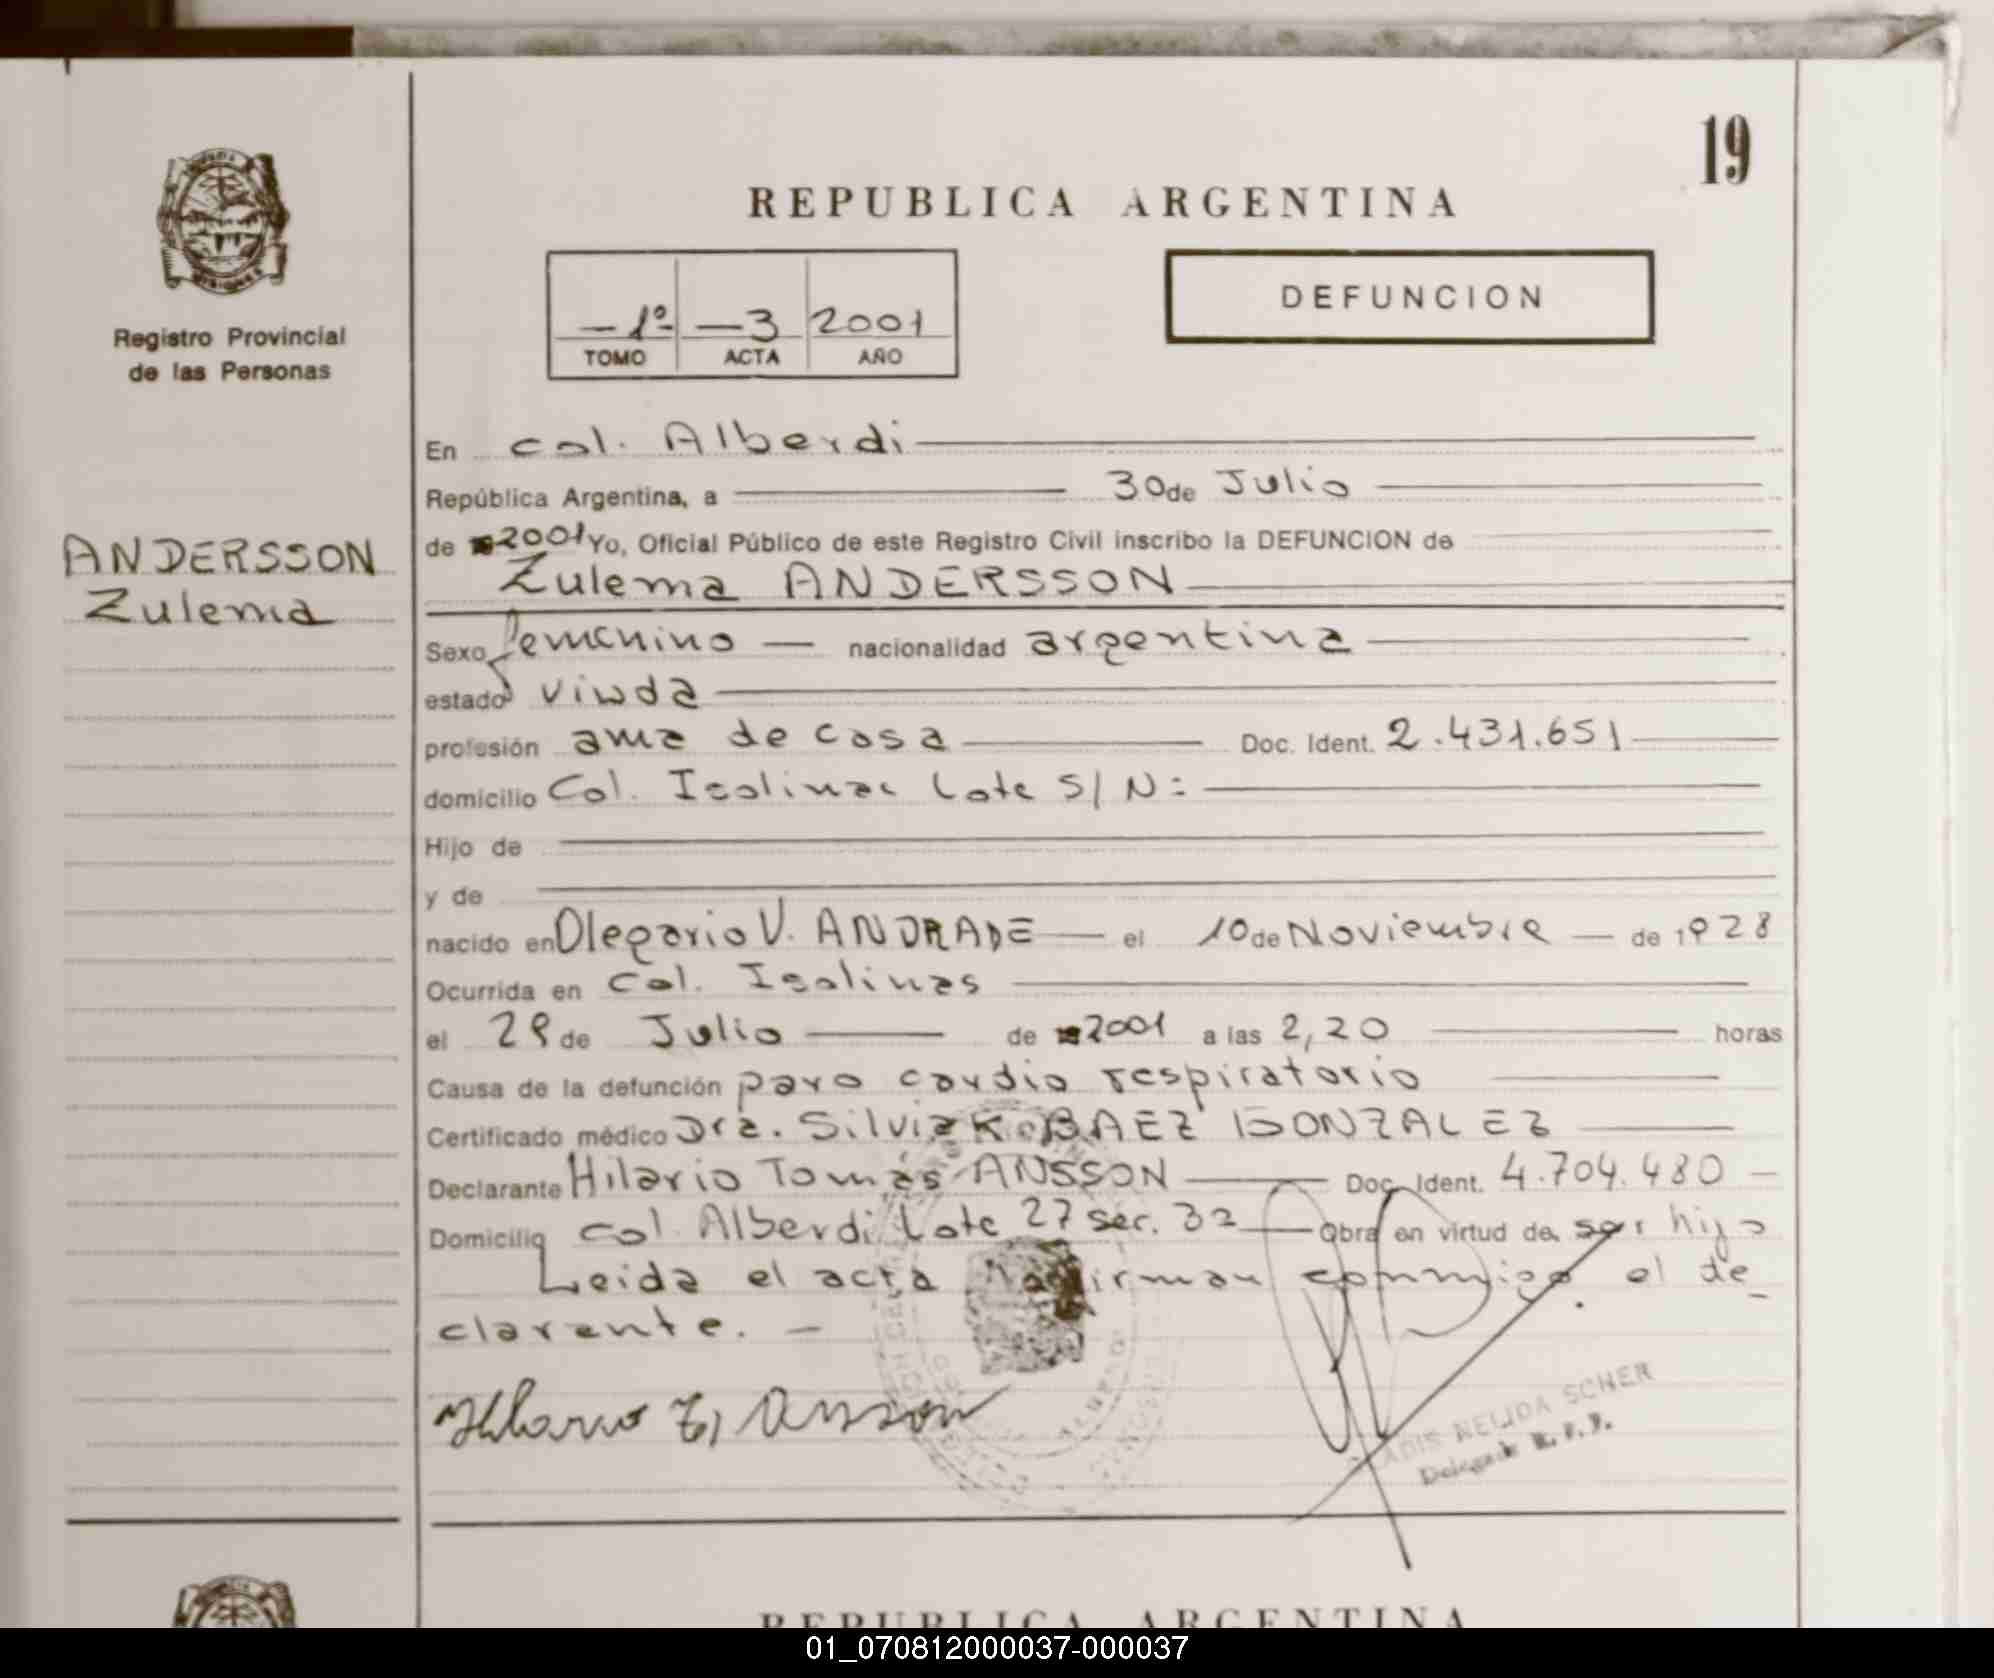 19
REPUBLICA ARGENTINA
DEFUNCION
Registro Provincial
de las Personas
-1º -3 2001
TOMO ACTA AÑO
ANDERSSON
Zulema
En col. Alberdi
República Argentina, a 30 de Julio
de 2001 Yo, Oficial Público de este Registro Civil inscribo la DEFUNCION de
Zulema ANDERSSON
Sexo femenino — nacionalidad argentina
estado viuda
profesión ama de casa Doc. Ident. 2.431.651
domicilio Col. Isolinas Lote S/N:
Hijo de
y de
nacido en Olegario V. ANDRADE el 10 de Noviembre — de 1928
Ocurrida en Col. Isolinas
el 29 de Julio de 2001 a las 2,20 horas
Causa de la defunción paro cardio respiratorio
Certificado médico Dra. Silvia K. BAEZ GONZALEZ
Declarante Hilario Tomás ANSSON Doc. Ident. 4.704.480 —
Domicilio col. Alberdi Lote 27 sec. 32 Obra en virtud de ser hijo
Leida el acta la firman conmigo el de_
clarante. —
Hilario T, Ansson
NELIDA SCHER
Delegada R. P. P.
REPUBLICA ARGENTINA
01_070812000037-000037